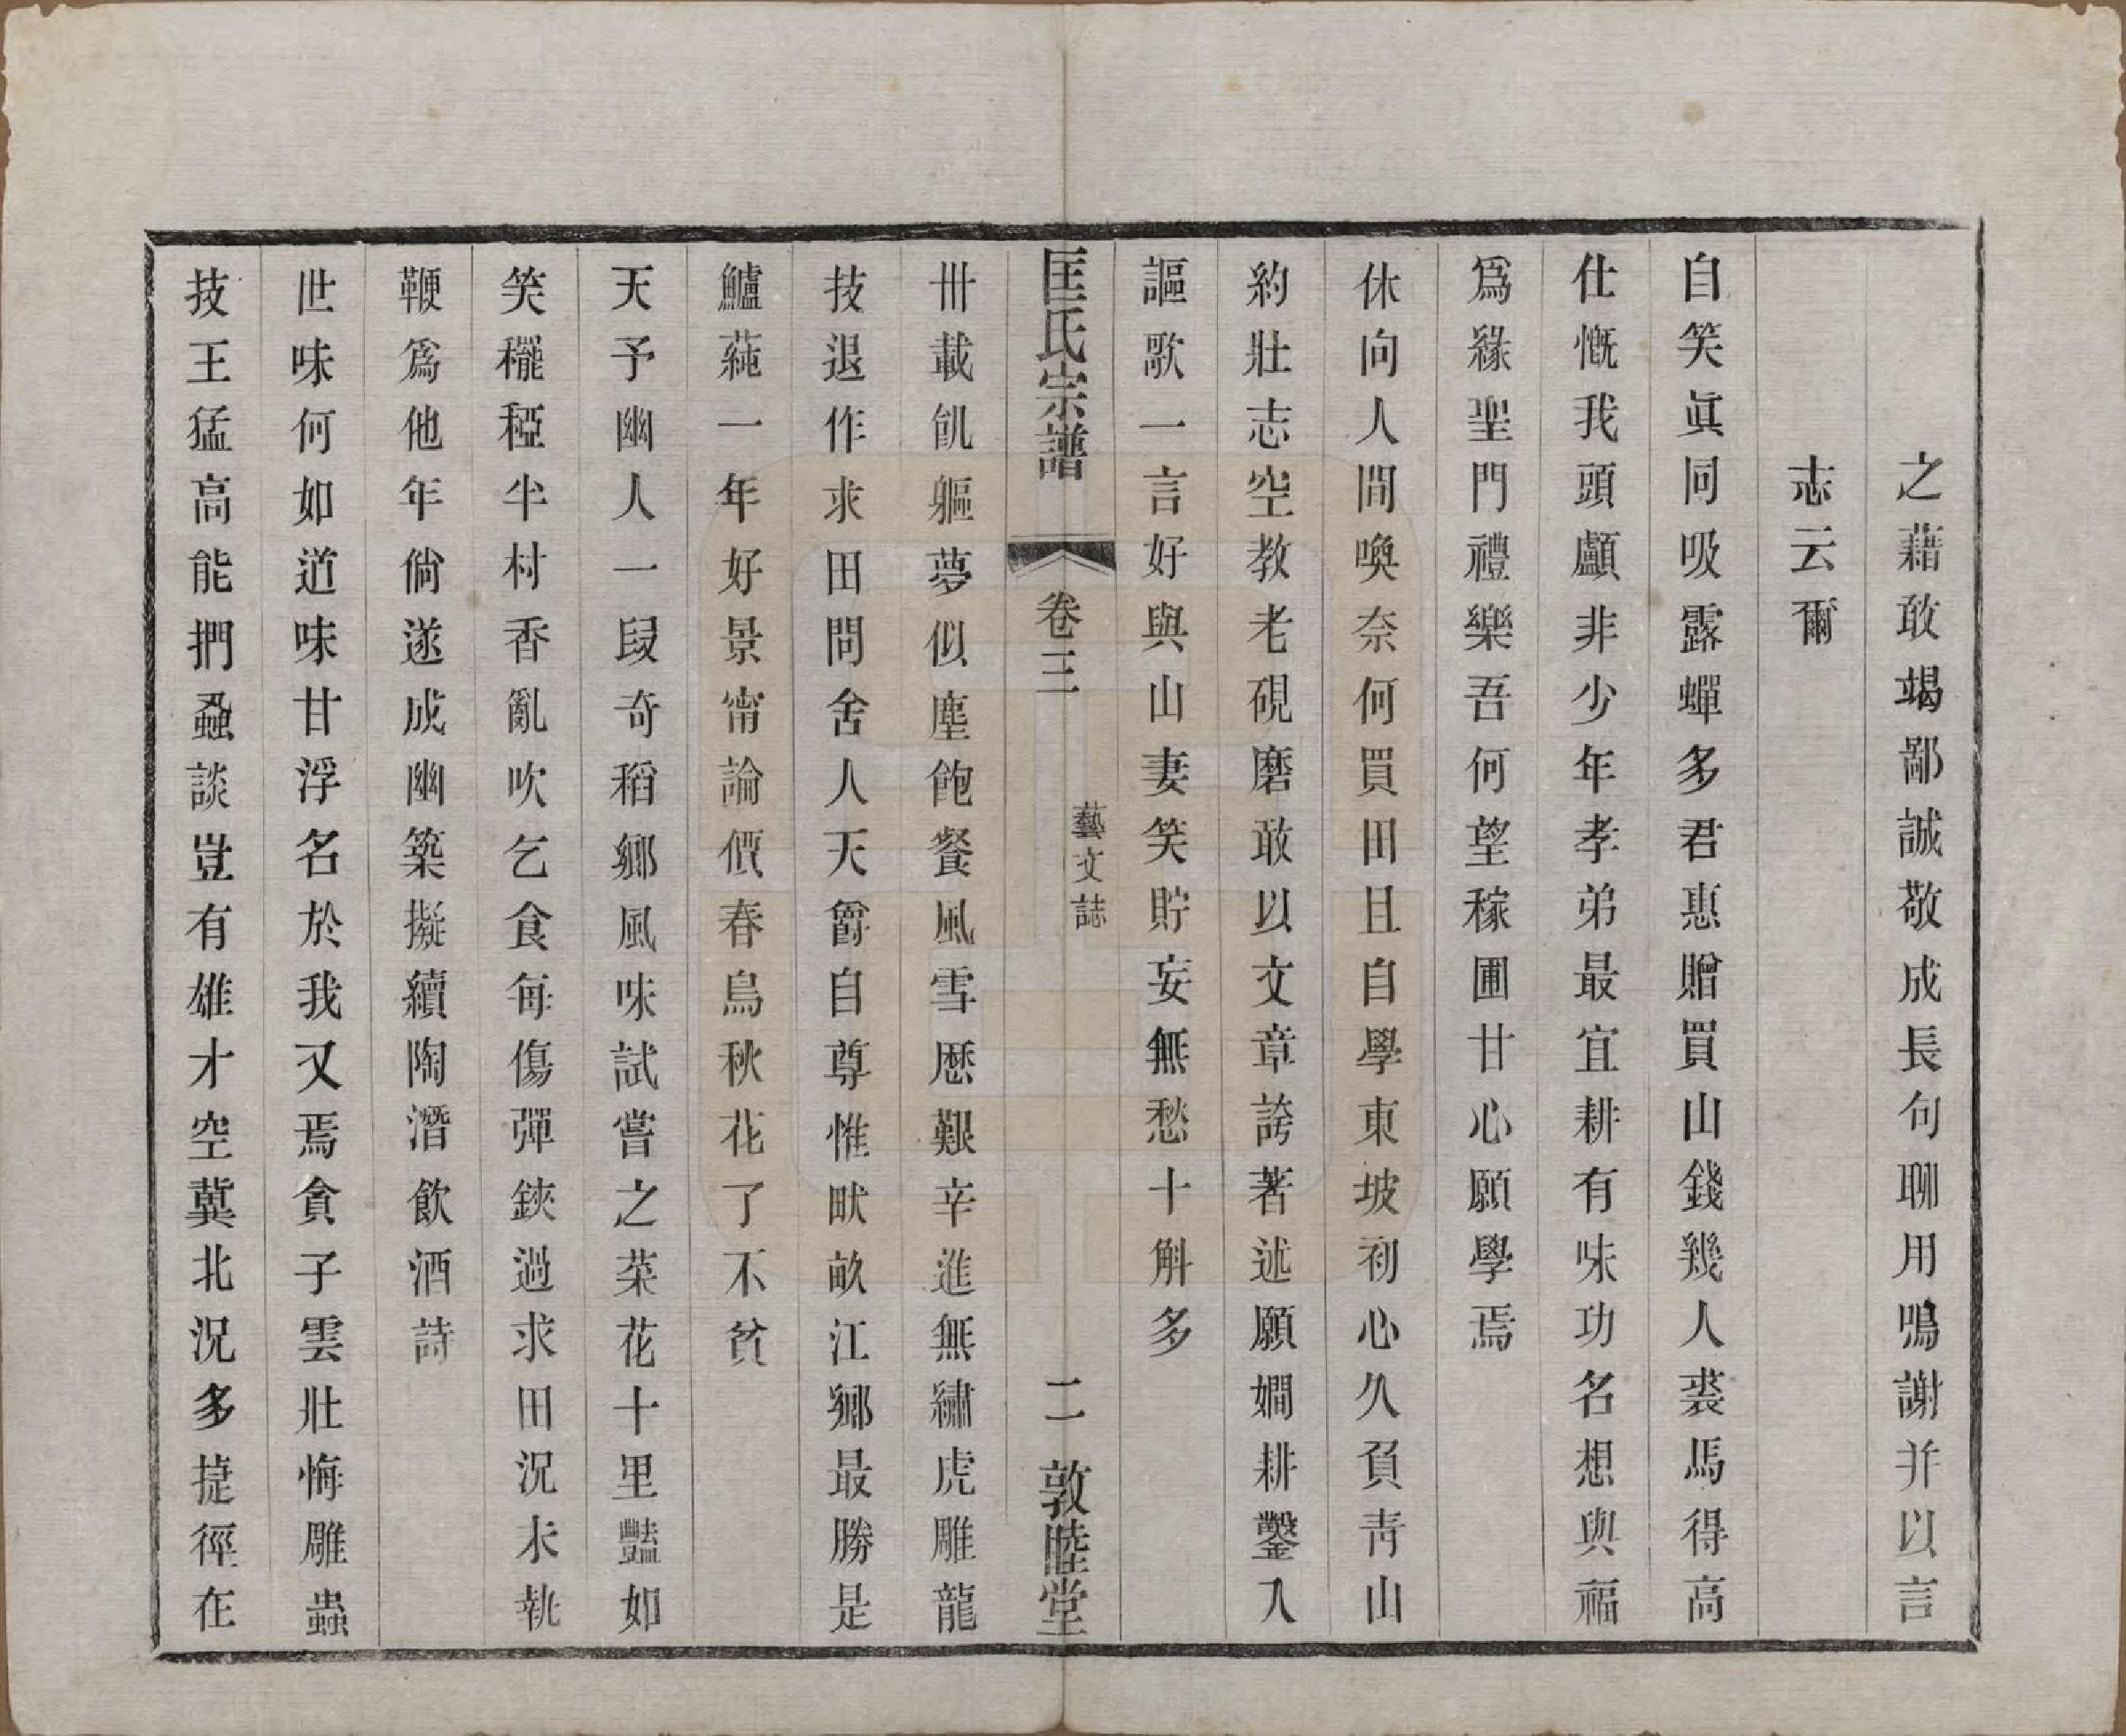 之藉敢竭鄙誠敬成長句聊用鳴謝并以言
志云爾
自笑眞同吸露蟬多君惠贈買山錢幾人裘馬得高
仕慨我頭顱非少年孝弟最宜耕有味功名想與福
爲緣聖門禮樂吾何望稼圃甘心願學焉
休向人間喚奈何買田且自學東坡初心久負青山
約壯志空教老硯磨敢以文章誇著述願嫺耕鑿入
謳歌一言好與山妻笑貯妄無愁十斛多
匡氏宗譜 卷三 藝文誌 二 敦睦堂
卅載飢軀夢似塵飽餐風雪歷艱辛進無繡虎雕龍
技退作求田問舍人天爵自尊惟畎畝江鄉最勝是
鱸蒓一年好景甯論價春鳥秋花了不貧
天予幽人一段奇稻鄉風味試嘗之菜花十里豔如
笑䆉稏半村香亂吹乞食每傷彈鋏過求田況未執
鞭爲他年倘遂成幽築擬續陶潛飲酒詩
世味何如道味甘浮名於我又焉貪子雲壯悔雕蟲
技王猛高能捫蝨談豈有雄才空冀北況多捷徑在